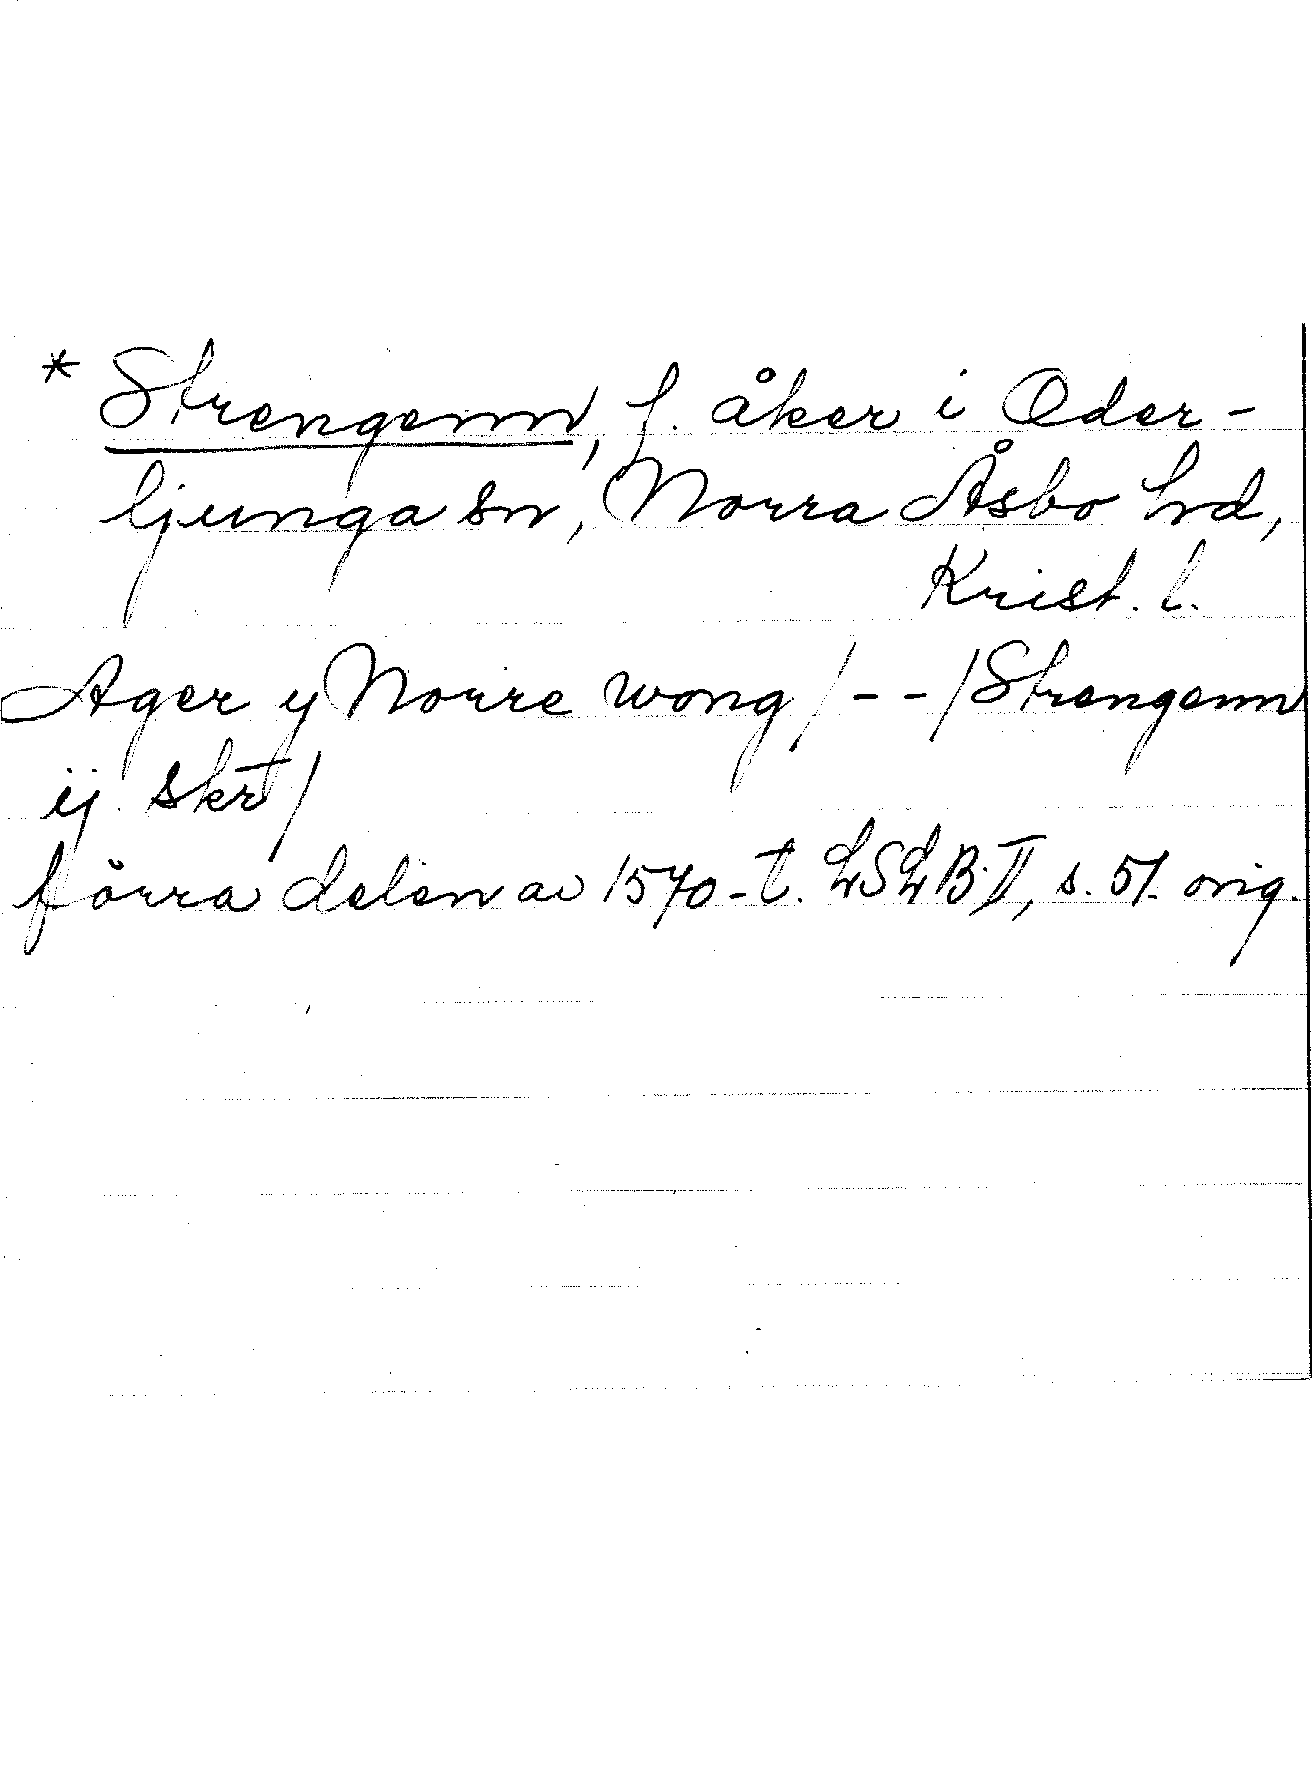 * Strengenn, f. åker i Oder-
ljunga sn, Norra Åsbo hd,
Krist. l.
Ager y Norre wong /--/ Strengenn
ij skr̄ /
förra delen av 1570-t. LSLB II, s. 51. orig.